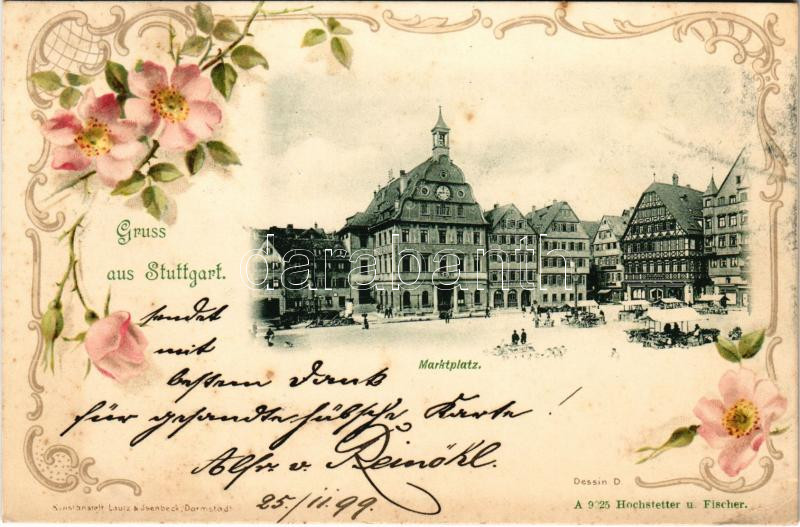 Gruss
aus Stuttgart.
darabanth
Marktplatz.
sendet
mit
bestem Dank
für gesandte hübsche Karte!
v. Reinöhl.
25./11.99.
Dessin D.
Kunstanstalt Lautz & Isenbeck, Darmstadt
A 9025 Hochstetter u. Fischer.